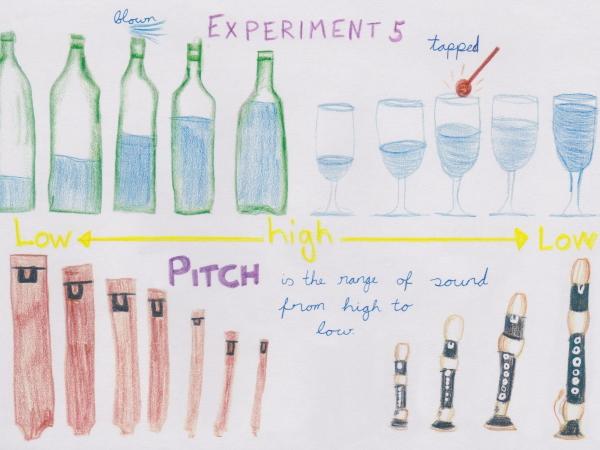 blown
EXPERIMENT 5
tapped
Low high Low
PITCH is the range of sound
from high to
low.